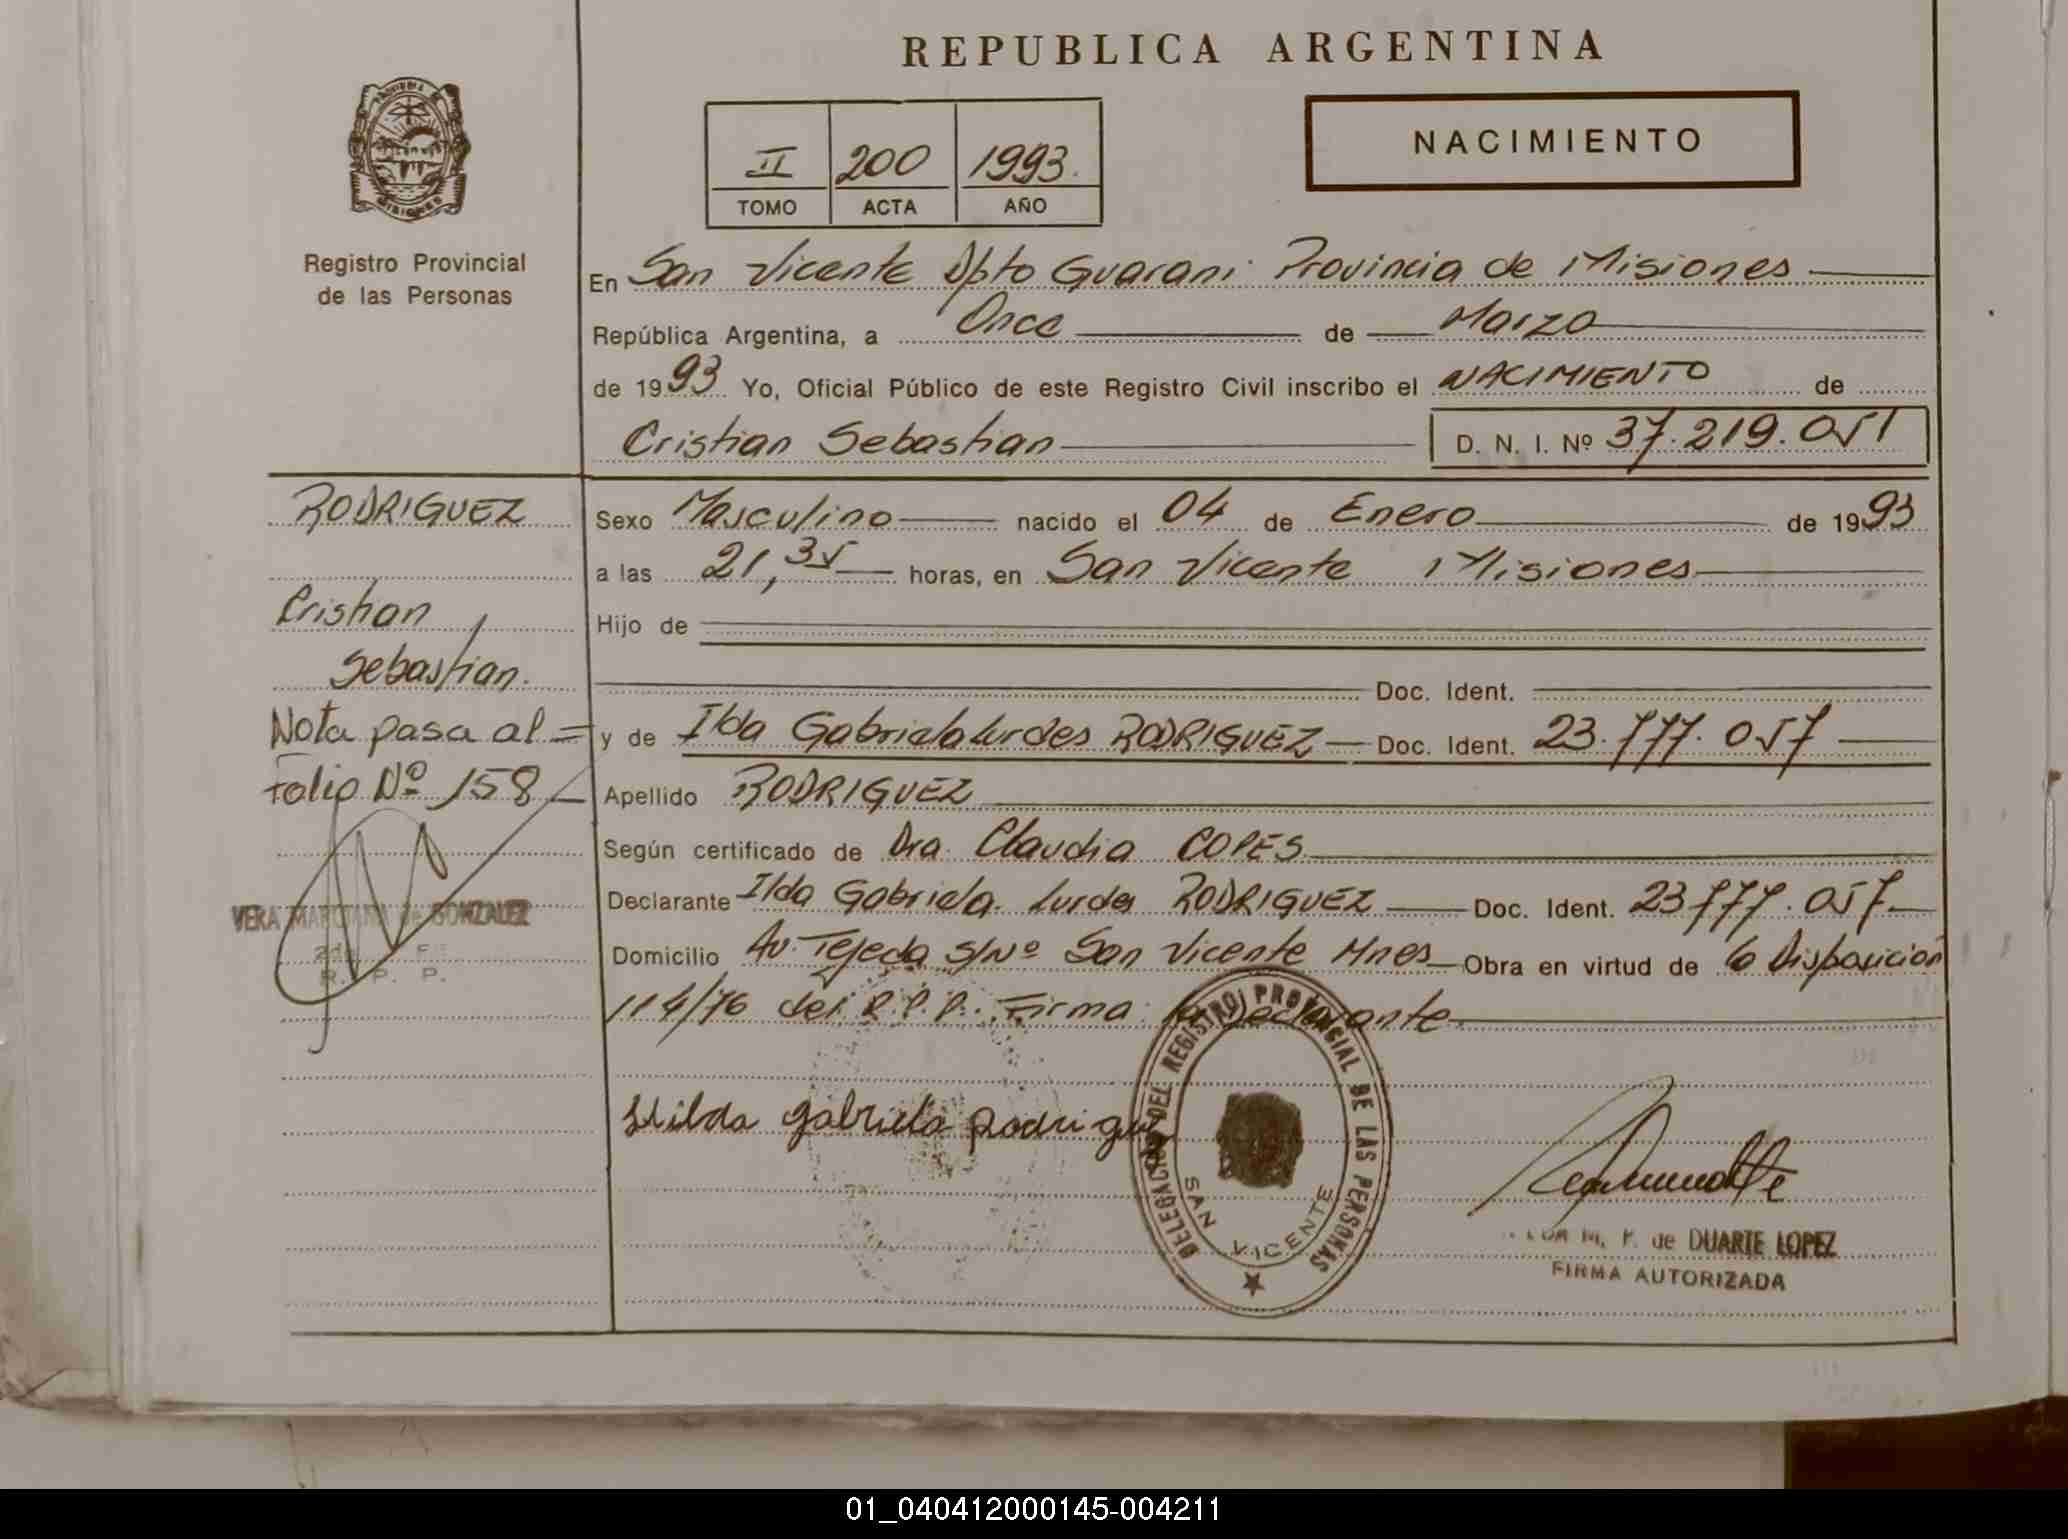 REPUBLICA ARGENTINA
NACIMIENTO
II 200 1993.
TOMO ACTA AÑO
Registro Provincial
de las Personas
En San Vicente Dpto Guarani Provincia de Misiones
República Argentina, a Once de Marzo
de 1993 Yo, Oficial Público de este Registro Civil inscribo el NACIMIENTO de
Cristian Sebastian D. N. I. Nº 37.219.051
RODRIGUEZ
Cristian
Sebastian.
Nota pasa al =
Folio Nº 158
VERA MARCIANA de GONZALEZ
R. P. P.
Sexo Masculino nacido el 04 de Enero de 1993
a las 21,35 horas, en San Vicente Misiones
Hijo de
Doc. Ident.
y de Ilda Gabriela Lurdes RODRIGUEZ Doc. Ident. 23.777.057
Apellido RODRIGUEZ
Según certificado de Dra. Claudia COPES
Declarante Ilda Gabriela Lurdes RODRIGUEZ Doc. Ident. 23.777.057
Domicilio Av. Tejeda S/Nº San Vicente Mnes Obra en virtud de la Disposición
114/76 del R.P.P. Firma la Declarante
Hilda Gabriela Rodriguez
DELEGACION DEL REGISTRO PROVINCIAL DE LAS PERSONAS
SAN VICENTE
M. F. de DUARTE LOPEZ
FIRMA AUTORIZADA
01_040412000145-004211